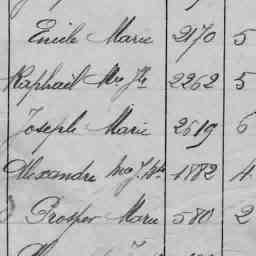 Emile Marie 2170 5
Raphaël Mie Jh 2262 5
Joseph Marie 2619 6
Alexandre 1882 4
Prosper Marie 580 2